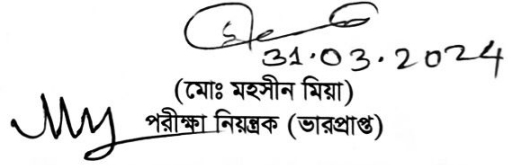 31.03.2024
(মোঃ মহসীন মিয়া)
পরীক্ষা নিয়ন্ত্রক (ভারপ্রাপ্ত)